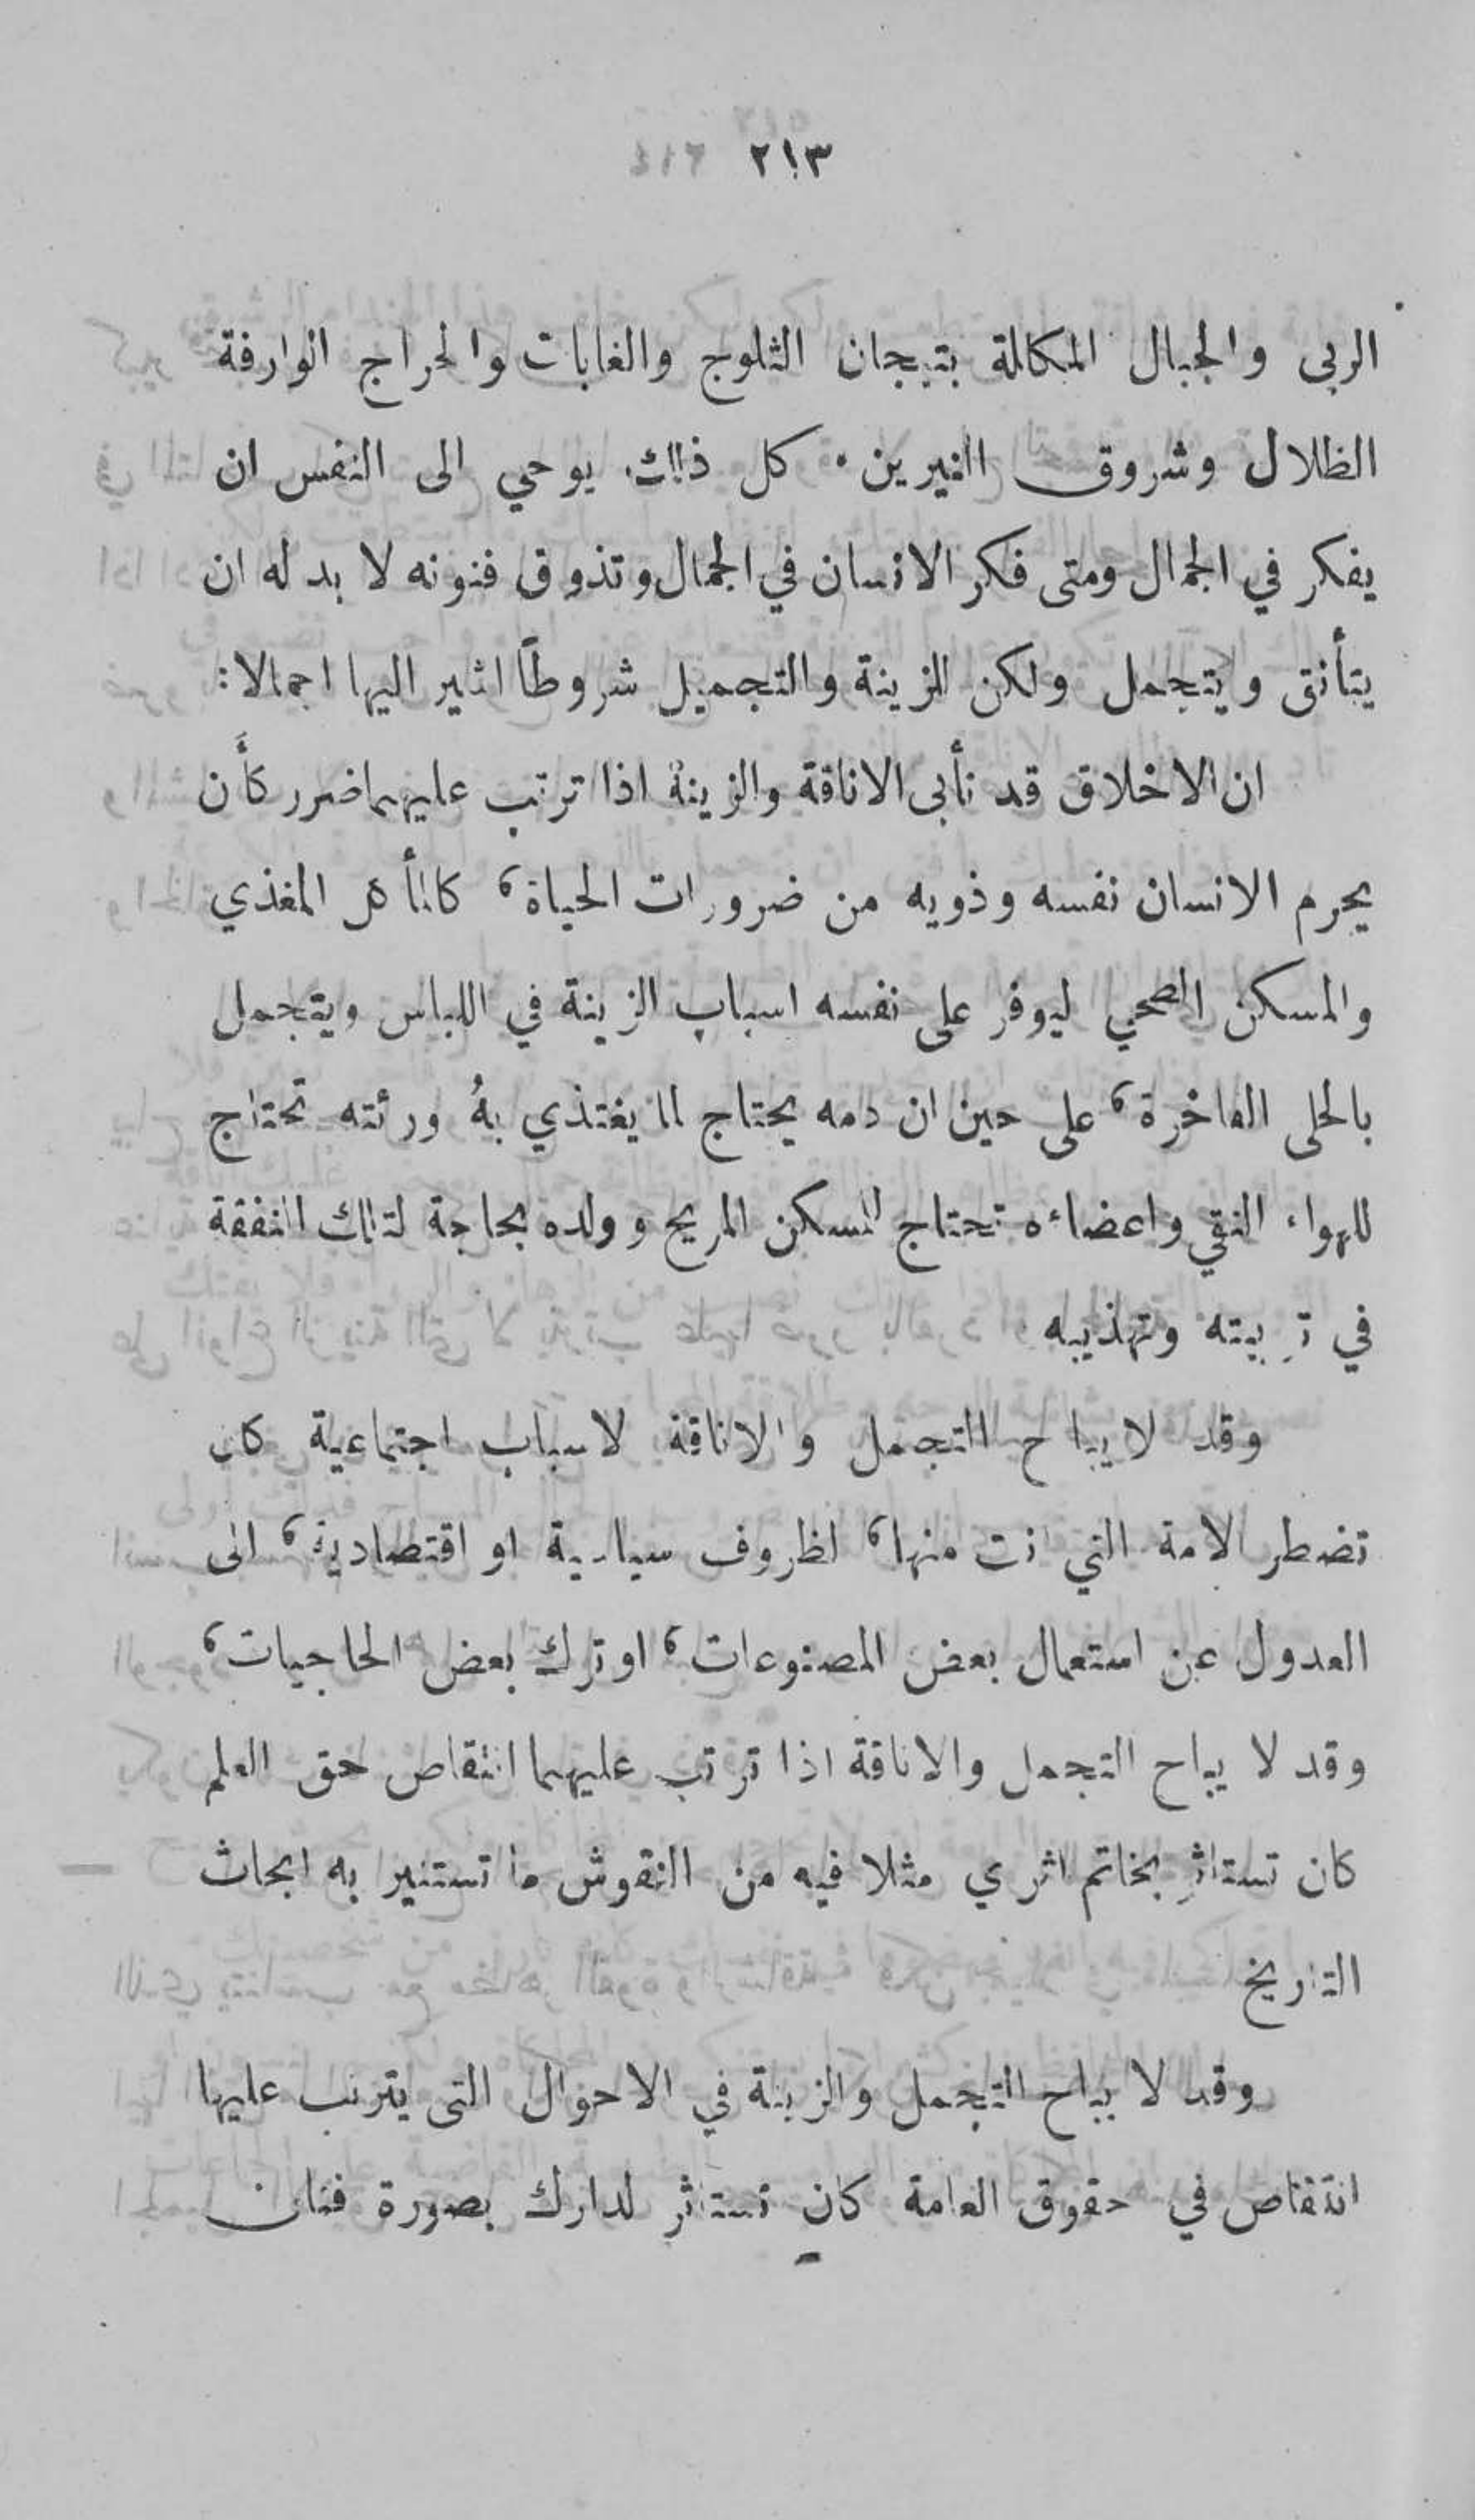 ٢١٣
الربى والجبال المكللة بتيجان الثلوج والغابات والحراج الوارفة
الظلال وشروق النيرين . كل ذلك يوحي الى النفس ان
يفكر في الجمال ومتى فكر الانسان في الجمال وتذوق فنونه لا بد له ان
يتأنق ويتجمل ولكن للزينة والتجميل شروطاً اشير اليها اجمالا :
ان الاخلاق قد تأبى الاناقة والزينة اذا ترتب عليهما ضرر كأن
يحرم الانسان نفسه وذويه من ضرورات الحياة، كالمأكل المغذي
والمسكن الصحي ليوفر على نفسه اسباب الزينة في اللباس ويتجمل
بالحلى الفاخرة، على حين ان دمه يحتاج لما يغتذي به ورئته تحتاج
للهواء النقي واعضاءه تحتاج للسكن المريح وولده بحاجة لتلك النفقة
في تربيته وتهذيبه
وقد لا يباح التجمل والاناقة لاسباب اجتماعية كان
تضطر الامة التي انت منها، لظروف سياسية او اقتصادية، الى
العدول عن استعمال بعض المصنوعات، او ترك بعض الحاجيات،
وقد لا يباح التجمل والاناقة اذا ترتب عليهما انتقاص حق العلم
كان تستاثر بخاتم اثري مثلا فيه من النقوش ما تستنير به ابحاث
التاريخ
وقد لا يباح التجمل والزينة في الاحوال التى يترتب عليها
انتقاص في حقوق العامة كان تستاثر لدارك بصورة فنان